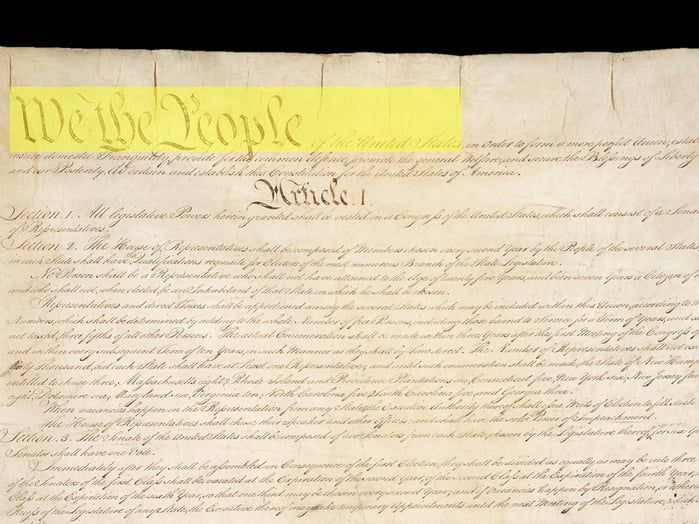 We the People of the United States, in Order to form a more perfect Union, estab
insure domestic Tranquility, provide for the common defence, promote the general Welfare, and secure the Blessings of Liberty
and our Posterity, do ordain and establish this Constitution for the United States of America.
Article. I.
Section. 1. All legislative Powers herein granted shall be vested in a Congress of the United States, which shall consist of a Senate
of Representatives.
Section. 2. The House of Representatives shall be composed of Members chosen every second Year by the People of the several States
in each State shall have the Qualifications requisite for Electors of the most numerous Branch of the State Legislature.
No Person shall be a Representative who shall not have attained to the Age of twenty five Years, and been seven Years a Citizen of
and who shall not, when elected, be an Inhabitant of that State in which he shall be chosen.
Representatives and direct Taxes shall be apportioned among the several States which may be included within this Union, according to
Numbers, which shall be determined by adding to the whole Number of free Persons, including those bound to Service for a Term of Years, and
not taxed, three fifths of all other Persons. The actual Enumeration shall be made within three Years after the first Meeting of the Congress of
and within every subsequent Term of ten Years, in such Manner as they shall by Law direct. The Number of Representatives shall not
thirty Thousand, but each State shall have at Least one Representative; and until such enumeration shall be made, the State of New Hamp
entitled to chuse three, Massachusetts eight, Rhode Island and Providence Plantations one, Connecticut five, New York six, New Jersey four
eight, Delaware one, Maryland six, Virginia ten, North Carolina five, South Carolina five, and Georgia three.
When vacancies happen in the Representation from any State, the Executive Authority thereof shall issue Writs of Election to fill such
The House of Representatives shall chuse their Speaker and other Officers; and shall have the sole Power of Impeachment.
Section. 3. The Senate of the United States shall be composed of two Senators from each State, chosen by the Legislature thereof, for six Years
Senator shall have one Vote.
Immediately after they shall be assembled in Consequence of the first Election, they shall be divided as equally as may be into three
of the Senators of the first Class shall be vacated at the Expiration of the second Year, of the second Class at the Expiration of the fourth Year,
Class at the Expiration of the sixth Year, so that one third may be chosen every second Year; and if Vacancies happen by Resignation, or otherw
Recess of the Legislature of any State, the Executive thereof may make temporary Appointments until the next Meeting of the Legislature,